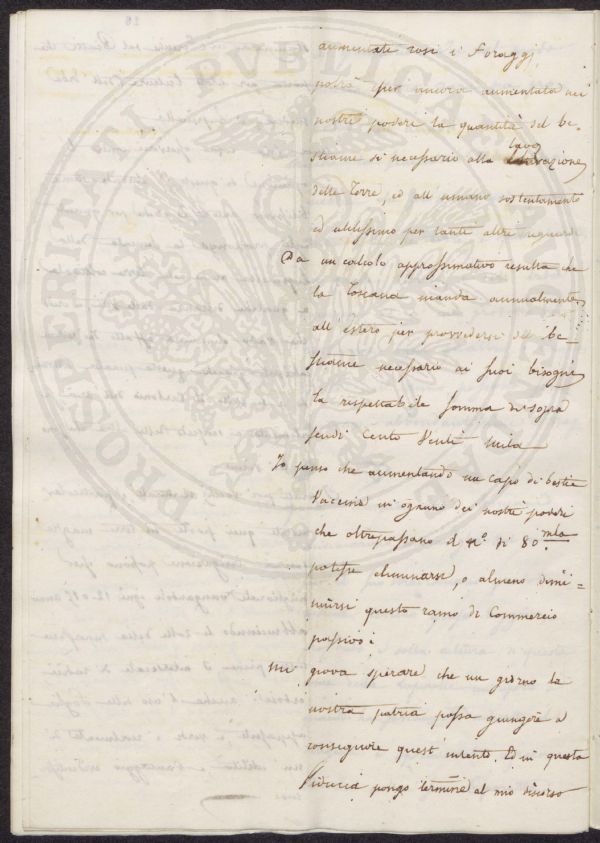 aumentati così i Foraggi,
potrà per ancora aumentata nei
nostri poderi la quantità del be-
stiame sì necessario alla lavorazione
delle Terre, ed all' umano sostentamento
ed utilissimo per tanti altri riguardi
Da un calcolo approssimativo resulta che
la Toscana manda annualmente
all' estero per provvedersi del be-
stiame necessario ai suoi bisogni
la respettabile somma di sopra
scudi Cento Venti mila
Io penso che aumentando un capo di bestie
Vaccine in ognuno dei nostri poderi
che oltrepassano il n.º di 80 mla
potesse eliminarsi, o almeno dimi=
nuirsi questo ramo di Commercio
passivo;
Mi giova sperare che un giorno la
nostra patria possa giungere a
conseguire quest' intento. Ed in questa
fiducia pongo termine al mio discorso
PROSPERITATI PUBLICAE